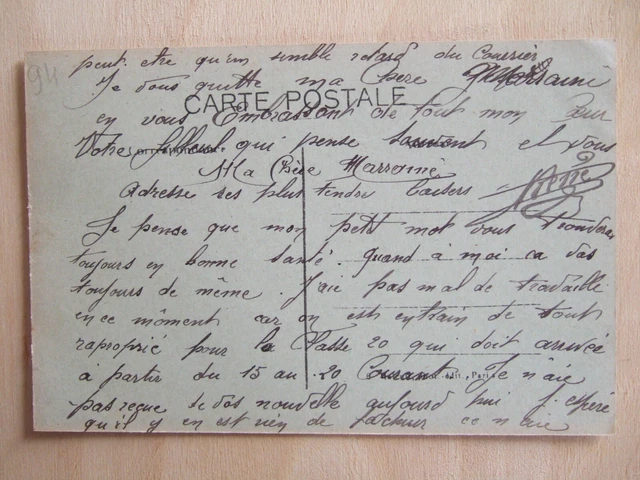 94
peut etre qu'un simble retard du Courrier
Je vous quitte ma Chere Marraine
CARTE POSTALE
en vous Embrassant de tout mon Cœur
Votre filleul qui pense souvent et vous
Adresse ses plus tendre baisers René
Ma Chère Marraine
Je pense que mon petit mot vous trouvera
toujours en bonne santé. quand à moi ca va
toujours de même. J'aie pas mal de travaille
en ce môment car on est entrain de tout
raproprié pour la Classe 20 qui doit arrivée
à partir du 15 au 20 Courant. Je n'aie
édit., Paris
pas reçue de vos nouvelle aujourd hui j'espère
qu'il y en est rien de facheux ce n'aie